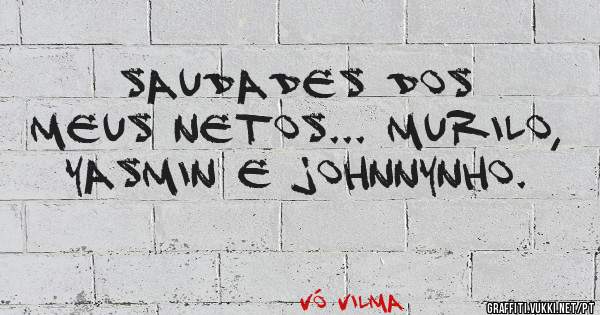 SAUDADES DOS
MEUS NETOS... MURILO,
YASMIN E JOHNNYNHO.
VÓ VILMA
GRAFFITI.VUKKI.NET/PT